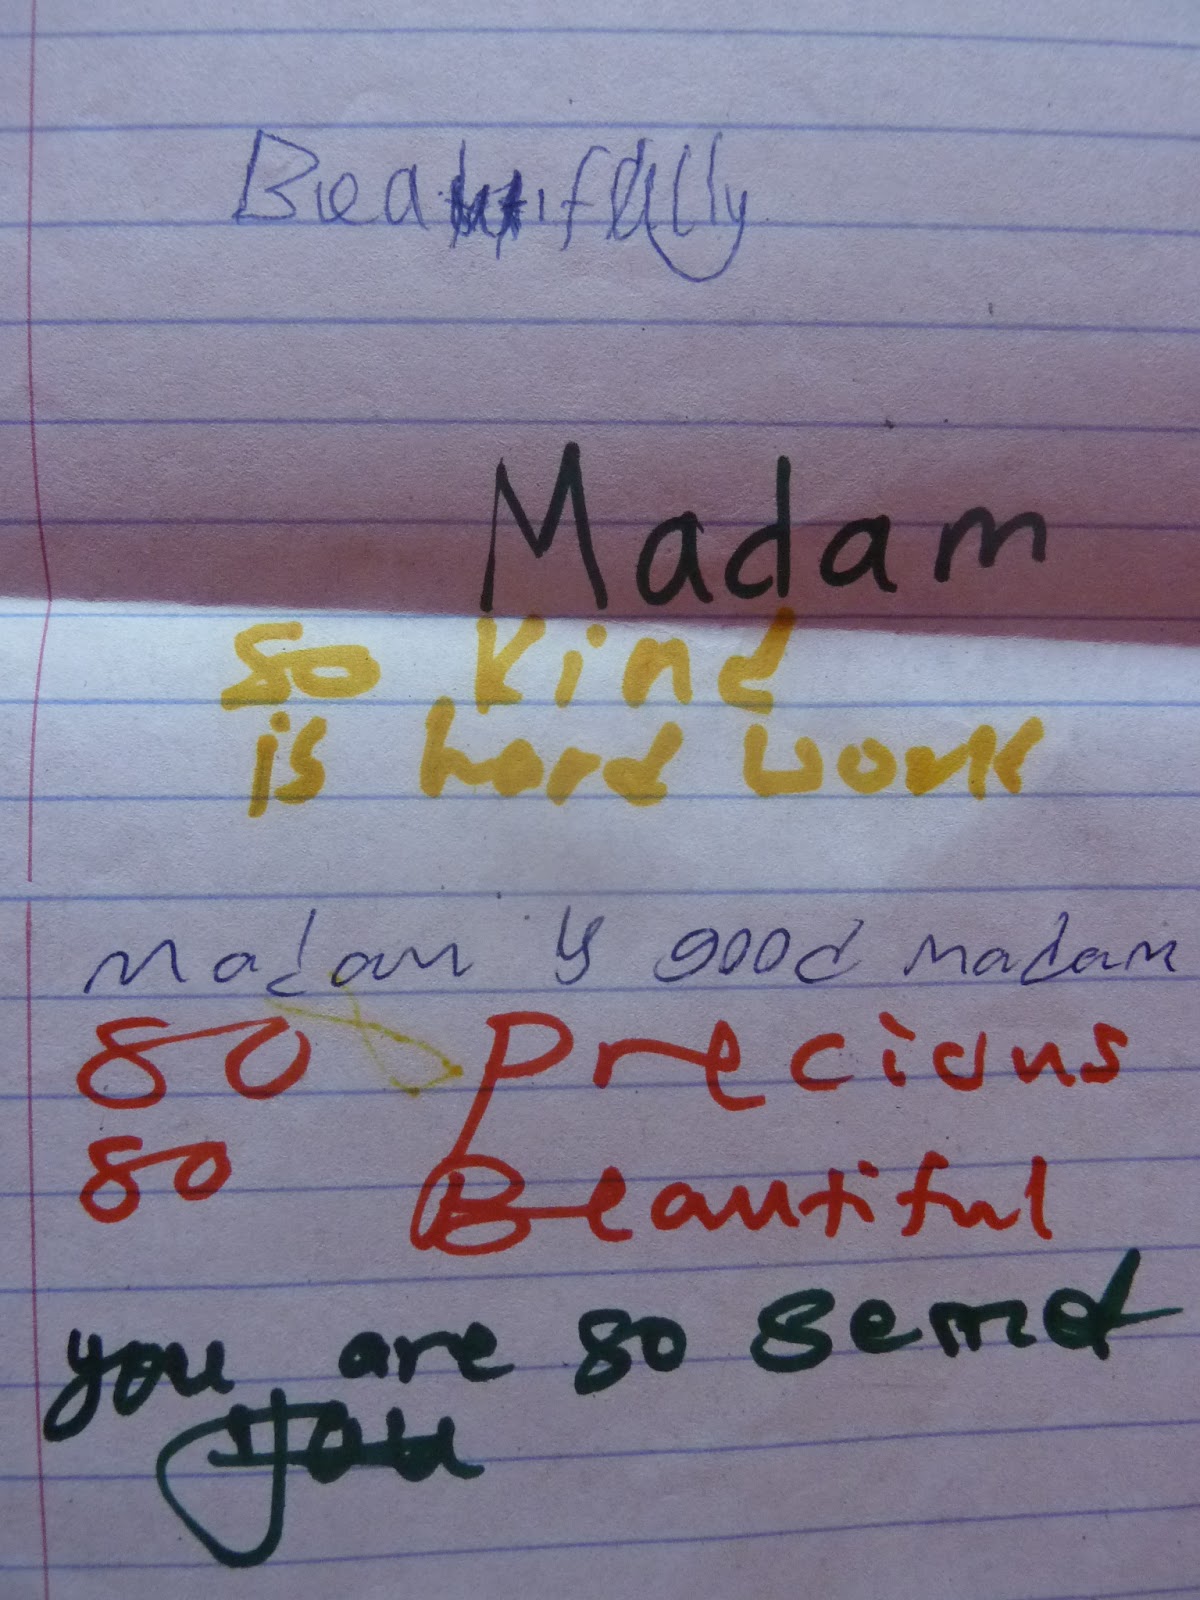 Beautifully
Madam
so kind
is hard work
Madam is good madam
so precious
so Beautiful
you are so
you